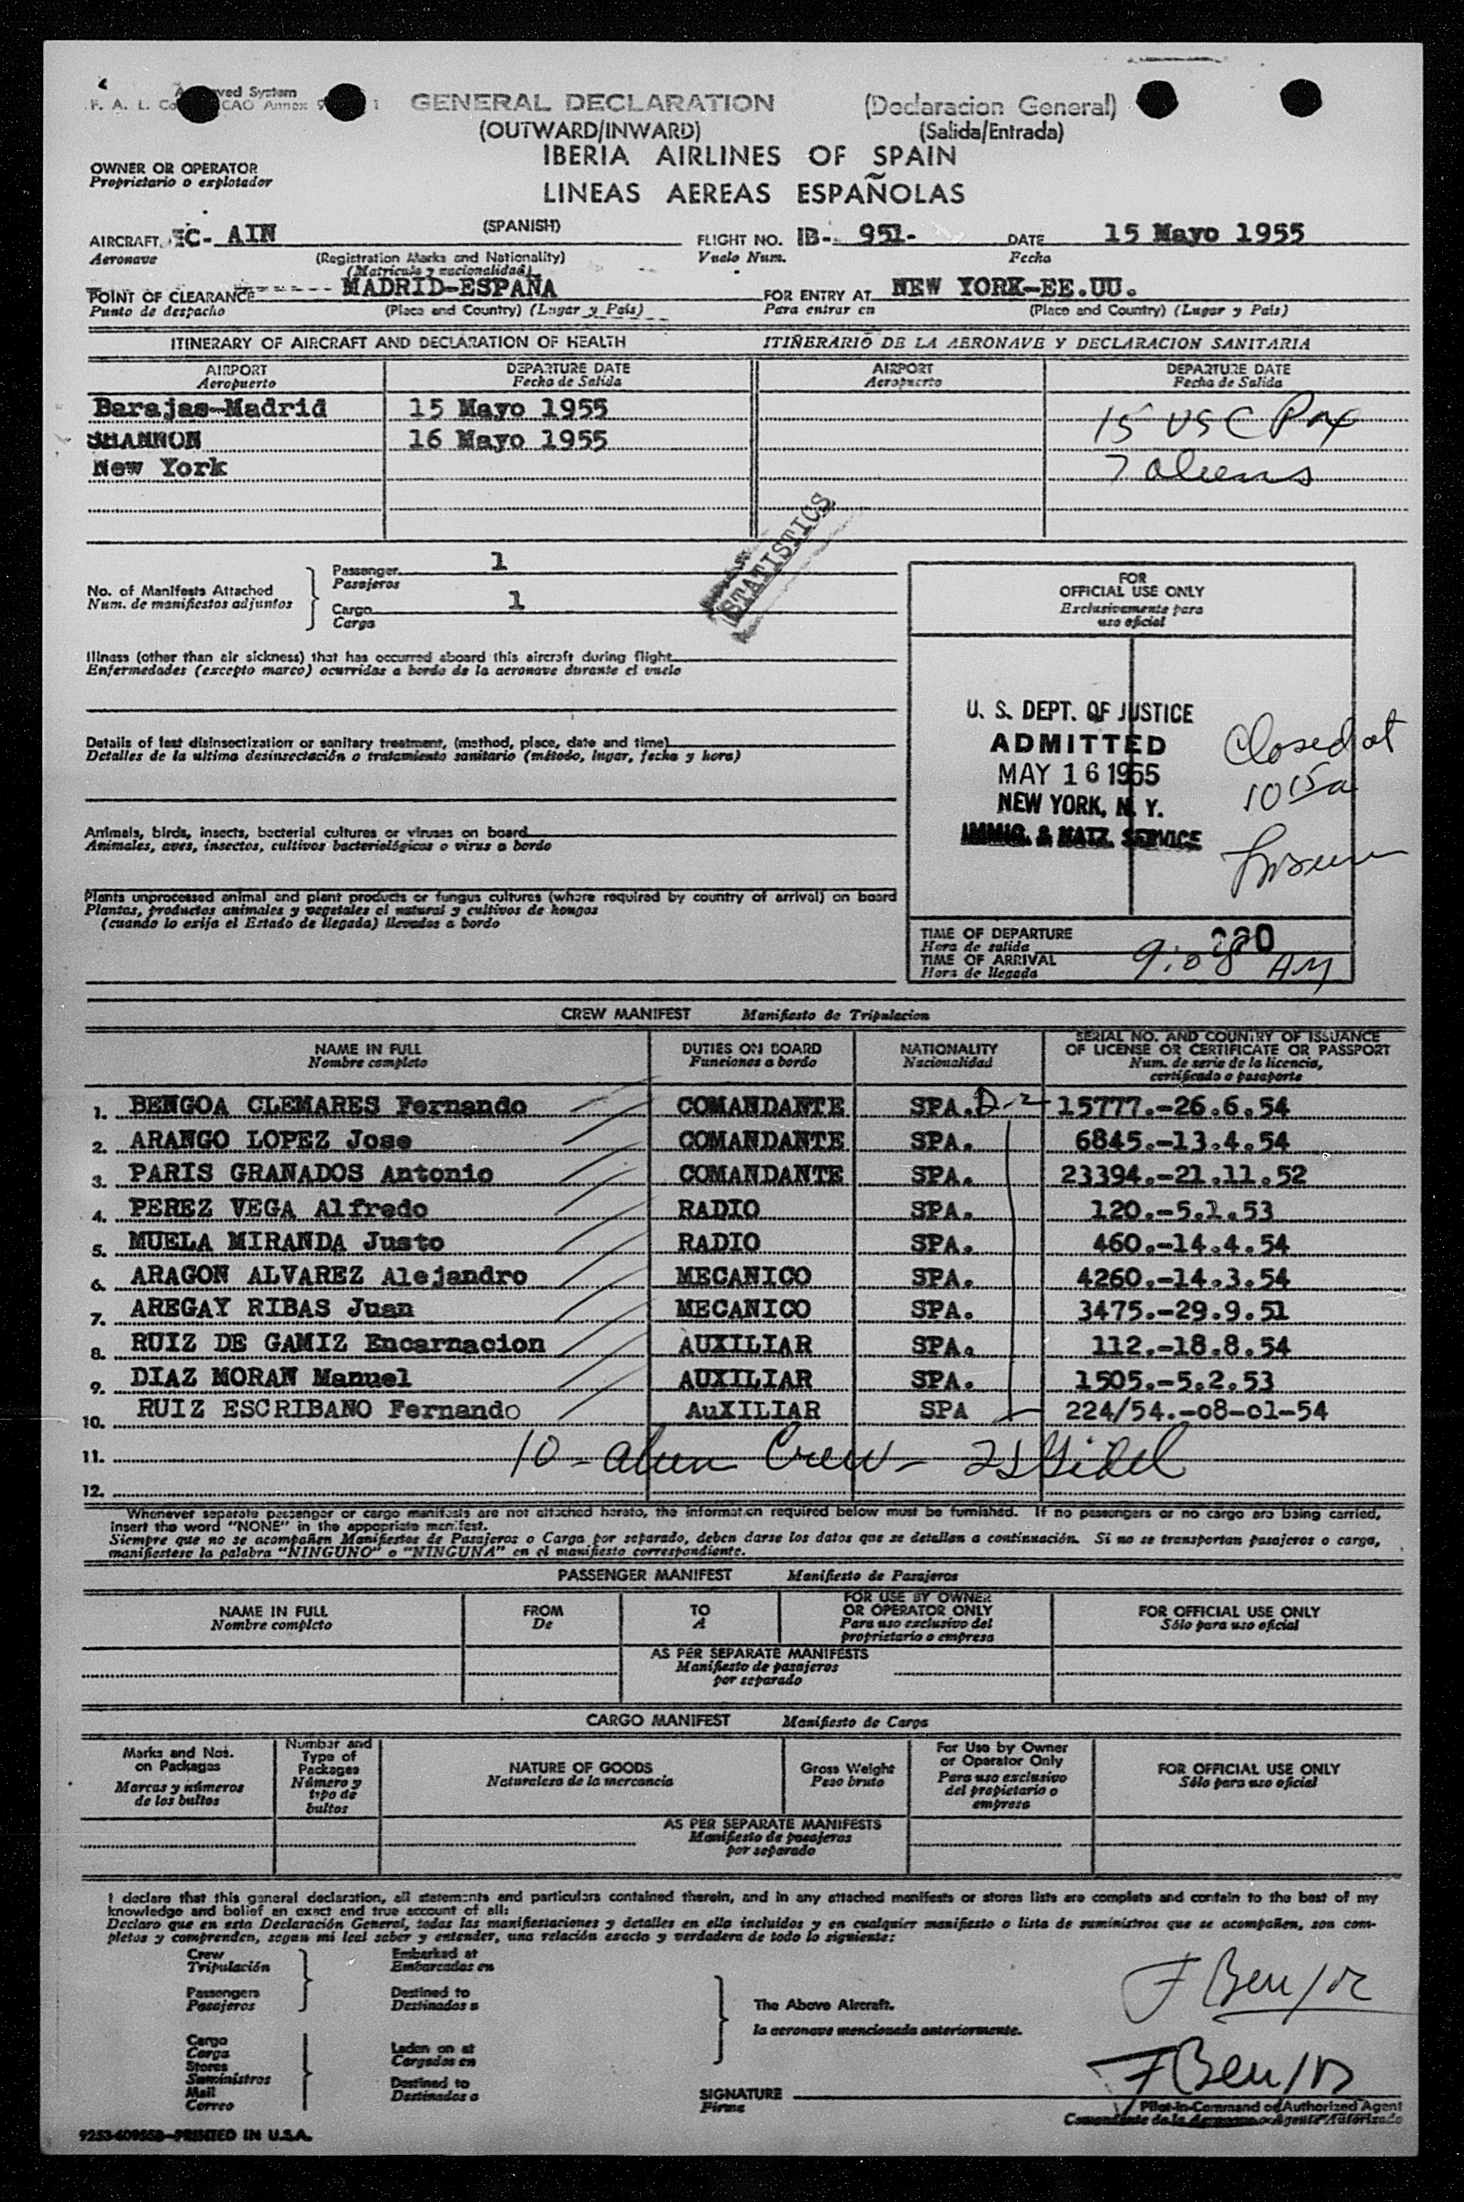 GENERAL DECLARATION (Declaracion General)
(OUTWARD/INWARD) (Salida/Entrada)
IBERIA AIRLINES OF SPAIN
OWNER OR OPERATOR
Proprietario o explotador
LINEAS AEREAS ESPAÑOLAS
AIRCRAFT EC- AIN (SPANISH) FLIGHT NO. IB- 951- DATE 15 Mayo 1955
Aeronave (Registration Marks and Nationality) Vuelo Num. Fecha
(Matricula y nacionalidad)
POINT OF CLEARANCE MADRID-ESPAÑA FOR ENTRY AT NEW YORK-EE.UU.
Punto de despacho (Place and Country) (Lugar y Pais) Para entrar en (Place and Country) (Lugar y Pais)
ITINERARY OF AIRCRAFT AND DECLARATION OF HEALTH ITIÑERARIO DE LA AERONAVE Y DECLARACION SANITARIA
AIRPORT DEPARTURE DATE AIRPORT DEPARTURE DATE
Aeropuerto Fecha de Salida Aeropuerto Fecha de Salida
Barajas-Madrid 15 Mayo 1955 15 USC Pax
SHANNON 16 Mayo 1955
New York 7 aliens
STATISTICS
Passenger 1
No. of Manifests Attached Pasajeros
Num. de manifiestos adjuntos Cargo 1
Carga
FOR
OFFICIAL USE ONLY
Exclusivamente para
uso oficial
Illness (other than air sickness) that has occurred aboard this aircraft during flight
Enfermedades (excepto mareo) ocurridas a bordo de la aeronave durante el vuelo
Details of last disinsectization or sanitary treatment, (method, place, date and time)
Detalles de la ultima desinsectación o tratamiento sanitario (método, lugar, fecha y hora)
U. S. DEPT. OF JUSTICE
ADMITTED
MAY 16 1955
NEW YORK, N. Y.
IMMIG. & NATZ. SERVICE
Closed at
10 15a
Animals, birds, insects, bacterial cultures or viruses on board
Animales, aves, insectos, cultivos bacteriológicos o virus a bordo
Plants unprocessed animal and plant products or fungus cultures (where required by country of arrival) on board
Plantas, productos animales y vegetales al natural y cultivos de hongos
(cuando lo exija el Estado de llegada) llevados a bordo
TIME OF DEPARTURE
Hora de salida
TIME OF ARRIVAL 9:08 AM
Hora de llegada
CREW MANIFEST Manifiesto de Tripulacion
NAME IN FULL DUTIES ON BOARD NATIONALITY SERIAL NO. AND COUNTRY OF ISSUANCE
OF LICENSE OR CERTIFICATE OR PASSPORT
Nombre completo Funciones a bordo Nacionalidad Num. de serie de la licencia,
certificado o pasaporte
1. BENGOA CLEMARES Fernando COMANDANTE SPA. D-2 15777.-26.6.54
2. ARANGO LOPEZ Jose COMANDANTE SPA. 6845.-13.4.54
3. PARIS GRANADOS Antonio COMANDANTE SPA. 23394.-21.11.52
4. PEREZ VEGA Alfredo RADIO SPA. 120.-5.1.53
5. MUELA MIRANDA Justo RADIO SPA. 460.-14.4.54
6. ARAGON ALVAREZ Alejandro MECANICO SPA. 4260.-14.3.54
7. AREGAY RIBAS Juan MECANICO SPA. 3475.-29.9.51
8. RUIZ DE GAMIZ Encarnacion AUXILIAR SPA. 112.-18.8.54
9. DIAZ MORAN Manuel AUXILIAR SPA. 1505.-5.2.53
10. RUIZ ESCRIBANO Fernando AuXILIAR SPA 224/54.-08-01-54
11. 10 - alien Crew -
12.
Whenever separate passenger or cargo manifests are not attached hereto, the information required below must be furnished. If no passengers or no cargo are being carried,
insert the word "NONE" in the appopriate manifest.
Siempre que no se acompañen Manifiestos de Pasajeros o Carga por separado, deben darse los datos que se detallan a continuación. Si no se transportan pasajeros o carga,
manifiestese la palabra "NINGUNO" o "NINGUNA" en el manifiesto correspondiente.
PASSENGER MANIFEST Manifiesto de Pasajeros
NAME IN FULL FROM TO FOR USE BY OWNER
OR OPERATOR ONLY FOR OFFICIAL USE ONLY
Nombre completo De A Para uso exclusivo del
proprietario o empresa Sólo para uso oficial
AS PER SEPARATE MANIFESTS
Manifiesto de pasajeros
por separado
CARGO MANIFEST Manifiesto de Carga
Marks and Nos.
on Packages
Marcas y números
de los bultos
Number and
Type of
Packages
Número y
tipo de
bultos
NATURE OF GOODS
Naturaleza de la mercancia
Gross Weight
Peso bruto
For Use by Owner
or Operator Only
Para uso exclusivo
del propietario o
empresa
FOR OFFICIAL USE ONLY
Sólo para uso oficial
AS PER SEPARATE MANIFESTS
Manifiesto de pasajeros
por separado
I declare that this general declaration, all statements and particulars contained therein, and in any attached manifests or stores lists are complete and contain to the best of my
knowledge and belief an exact and true account of all:
Declaro que en esta Declaración General, todas las manifiestaciones y detalles en ella incluidos y en cualquier manifiesto o lista de suministros que se acompañen, son com-
pletos y comprenden, segun mi leal saber y entender, una relación exacta y verdadera de todo lo siguiente:
Crew Embarked at
Tripulación Embarcados en
Passengers Destined to
Pasajeros Destinados a
The Above Aircraft.
la aeronave mencionada anteriormente.
Cargo Laden on at
Carga Cargados en
Stores
Suministros Destined to
Mail Destinados a
Correo
SIGNATURE
Firma
Pilot-in-Command or Authorized Agent
Comandante de la Aeronave o Agente Autorizado
9253-609558—PRINTED IN U.S.A.